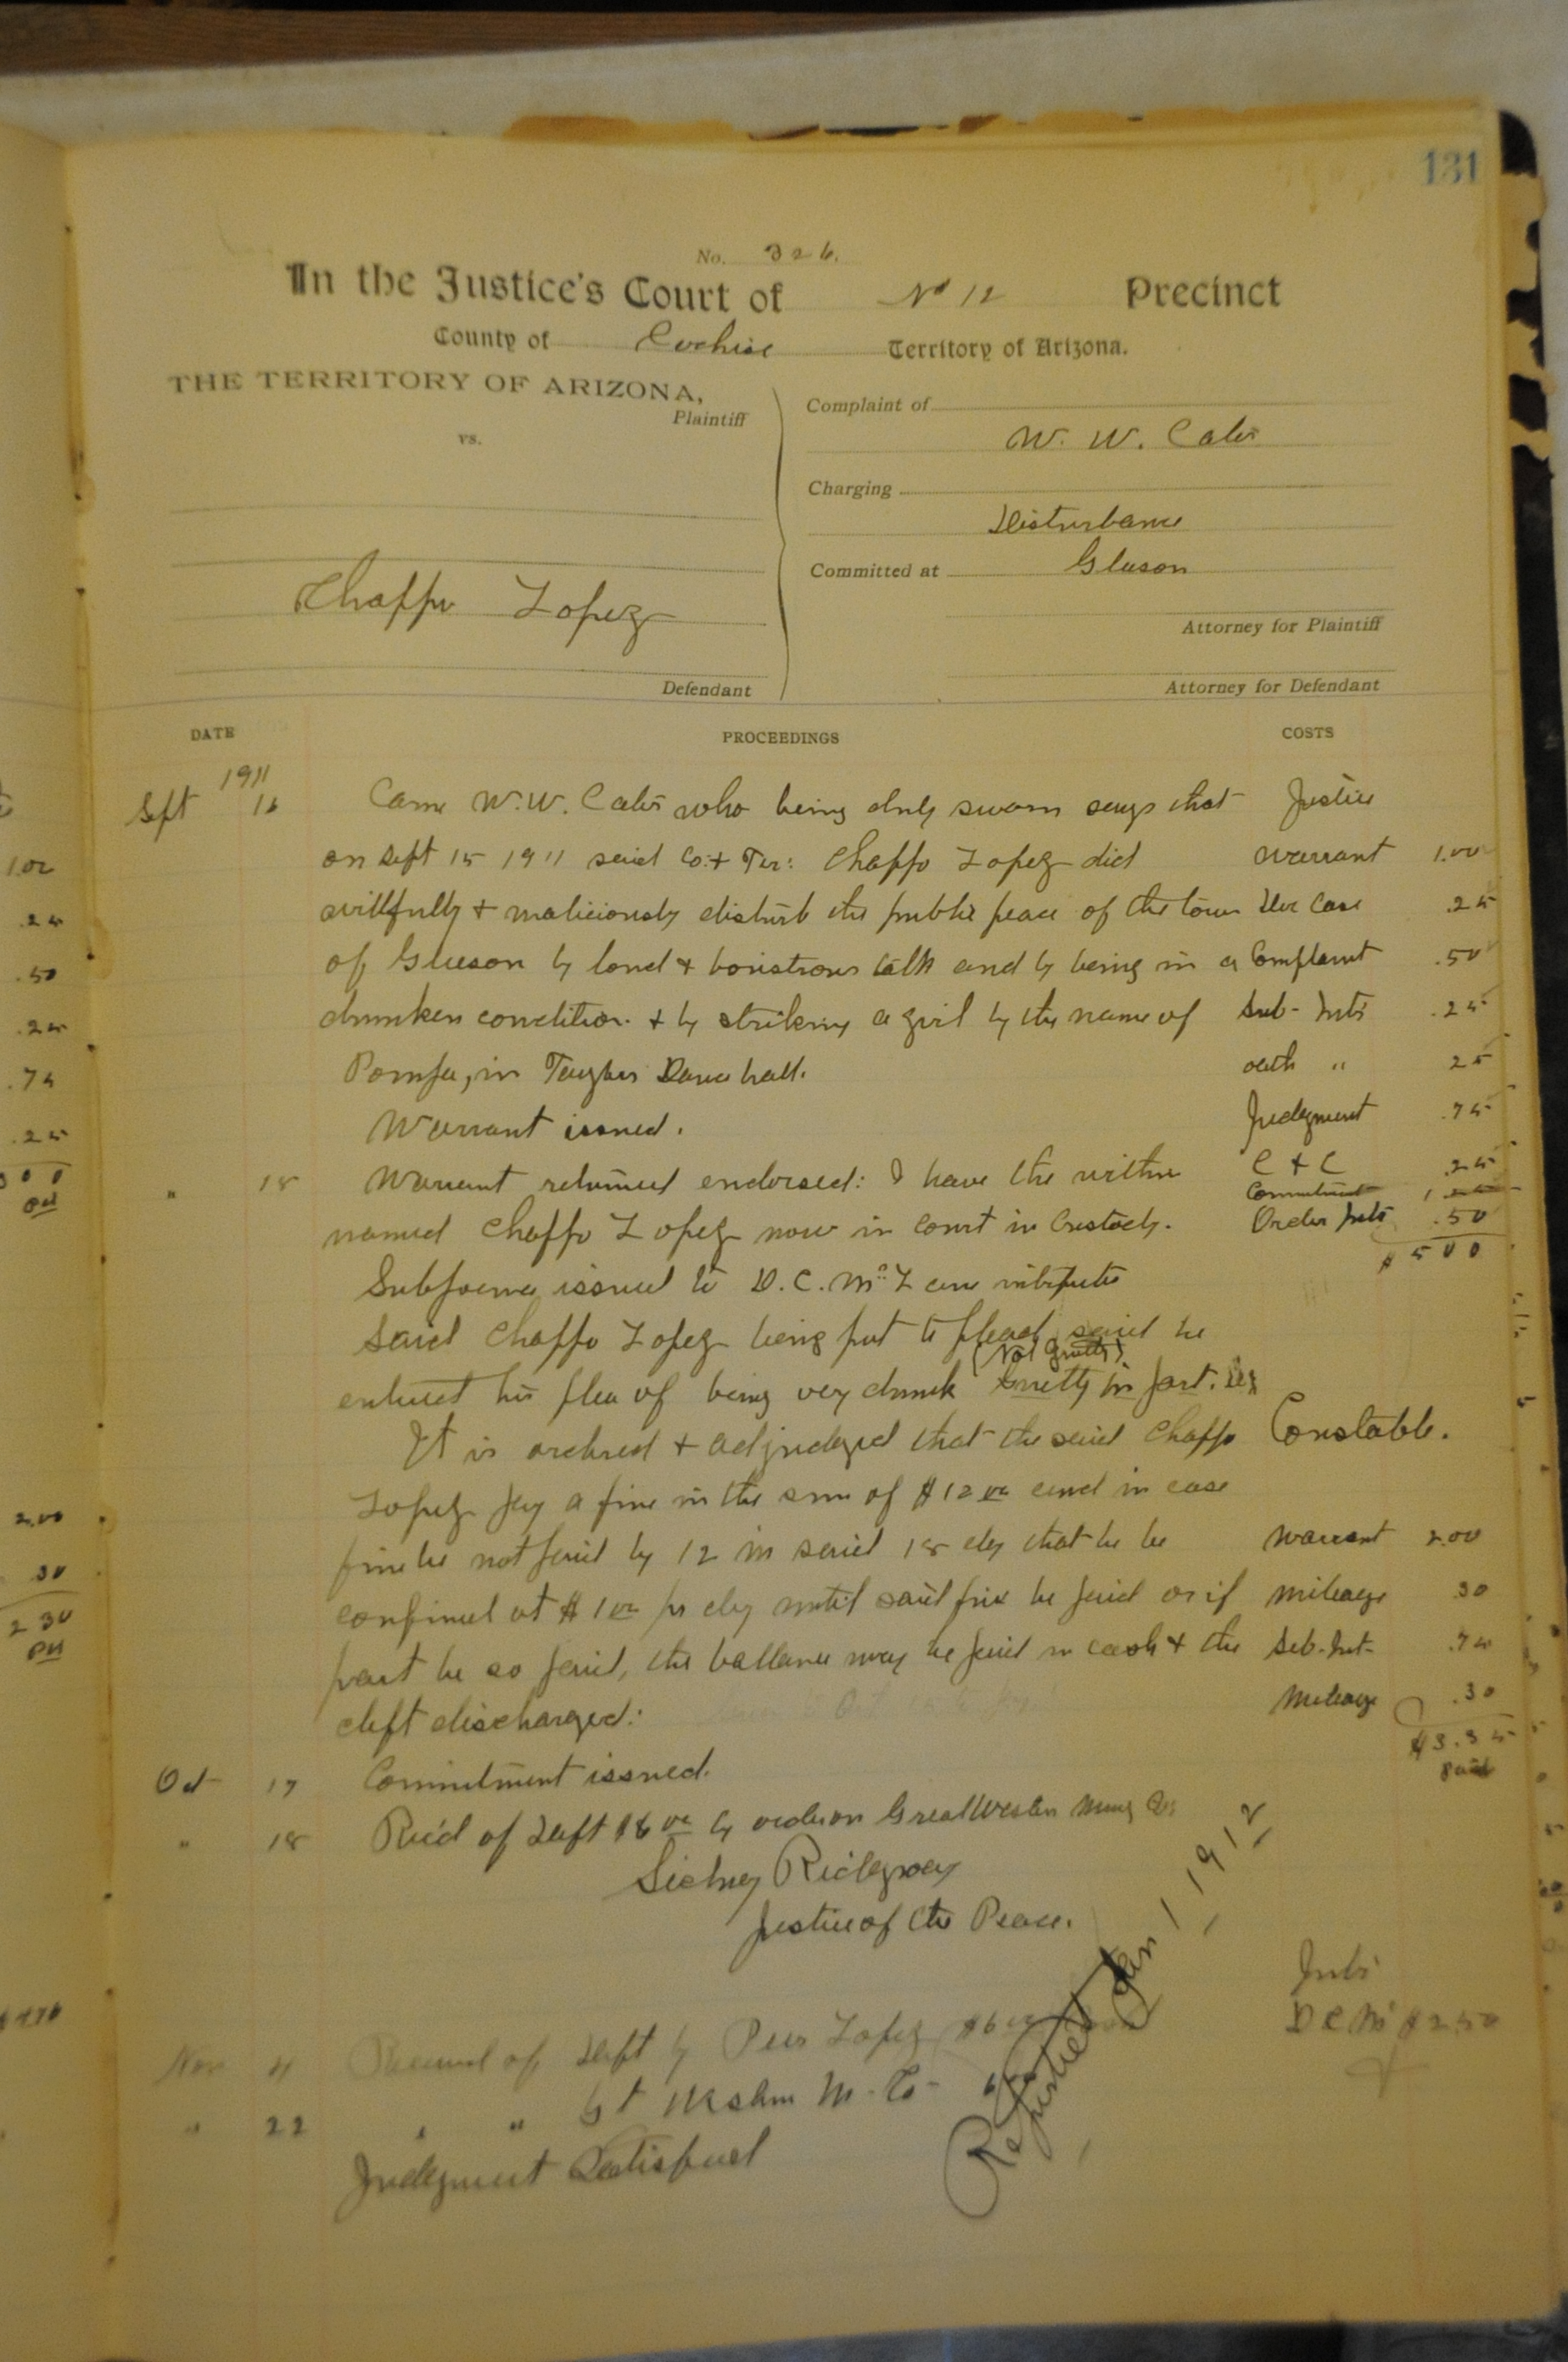 131
No. 326.
In the Justice's Court of No 12 Precinct
County of Cochise Territory of Arizona.
THE TERRITORY OF ARIZONA,
Plaintiff
vs.
Chappo Lopez
Defendant
Complaint of
W. W. Cates
Charging
Disturbance
Committed at Gleeson
Attorney for Plaintiff
Attorney for Defendant
DATE PROCEEDINGS COSTS
1911
Sept 16 Came W. W. Cates who being duly sworn says that Justice
on Sept 15 1911 said Co. + Ter: Chappo Lopez did Warrant 1.00
willfully + maliciously disturb the public peace of the town Doc Case .25
of Gleeson by loud + boistrous talk and by being in a Complaint .50
drunken condition + by striking a girl by the name of Sub- Intr .25
in Dance hall. oath " 25
Warrant issued. Judgment .75
" 18 Warrant returned endorsed: I have the within C + C .25
Commitment
named Chappo Lopez now in court in Custody. Order Intr .50
$ 500
Subpoena issued to D. C. Mc Lane interpreter
Said Chappo Lopez being put to plead, said he
(Not Guilty)
entered his plea of being very drunk Guilty in part.
It is ordered + adjudged that the said Chappo Constable.
Lopez pay a fine in the sum of $12 00 and in case
fine be not paid by 12 m said 18 day that he be Warrant 2.00
confined at $1 00 pr day until said fine be paid or if Mileage .30
part be so paid, the ballance may be paid in cash + the Sub-Int- .75
deft discharged: Mileage .30
$3.35
Paid
Oct 17 Commitment issued.
" 18 Rec'd of Deft $6 00 by order on Great Western Mining Co
Sidney Ridgway
Justice of the Peace.
Reported Jan 1 1912
Intr
D C Mc $2.50
Nov 4 Received of Deft by Lopez $6 00
" 22 " " Gt Western M. Co-
Judgment Satisfied
1.00
.25
.50
.25
.75
.25
2.00
30
2 30